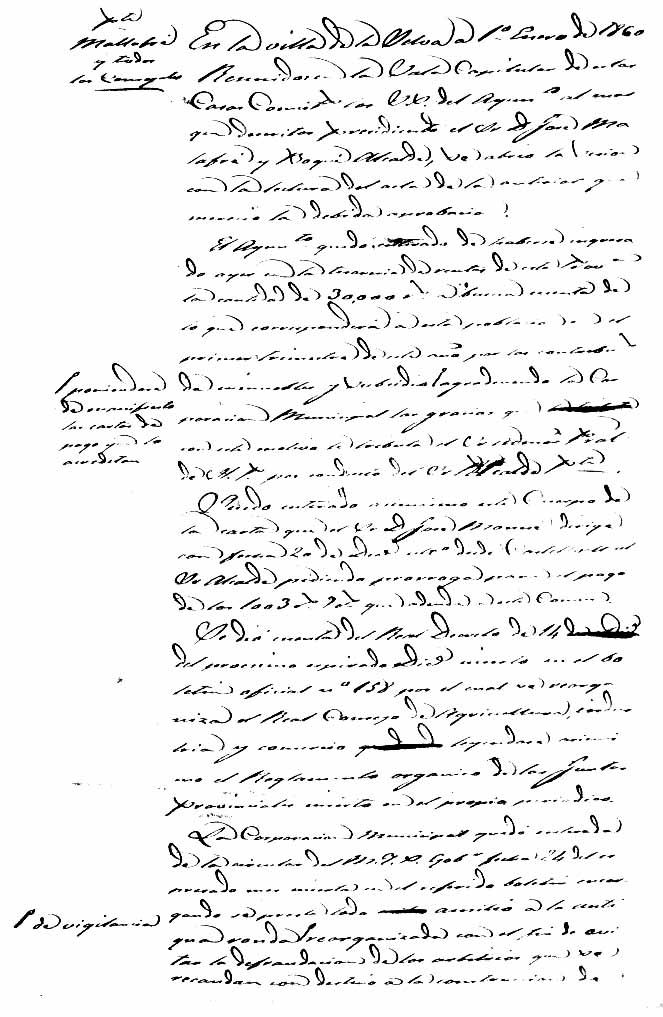 Pte
Mallafré
y todos
los Concejales
En la villa de la Selva a 1º Enero de 1860
Reunidos en la Sala Capitular de estas
Casas Consistles los SS. del Aynto al mar
gen descritos presidiendo el Sr D. José Ma
llafré y Alcalde, se abrió la sesion
con la lectura del acta de la anterior que
mereció la debida aprobacion.
El Aynto quedó enterado de haberse ingresa
do ayer en la tesoreria de rentas de esta
la cantidad de 30,000 á buena cuenta de
lo que corresponderá a este pueblo en el
primer trimestre de este año por las contribus
de inmuebles y subsidio agradeciendo la Cor
poracion Municipal las gracias que
con este motivo le tributa el
de por conducto del Sr Alcalde Pte.
poniendose
de manifiesto
las cartas de
pago que lo
acreditan
Quedó enterado asimismo este Cuerpo de
la carta que el Sr D. José dirige
con fecha 20 de Dice desde al
Sr Alcalde pidiendo prorroga para el pago
de los 1003 que adeuda a este Comun.
Se dió cuenta del Real Decreto de 14
del procsimo espirado Dice inserto en el bo
letin oficial nº 158 por el cual se reorga
niza el Real Consejo de Agricultura, indus
tria y comercio leyendose asimis
mo el Reglamento organico de las Juntas
Provinciales inserto en el propio periodico.
La Corporacion Municipal quedó enterada
de la circular del M.I.S. Gobr fecha 24 del es
presado mes inserta en el referido boletin encar
gando se preste todo auxilio a la anti
gua ronda reorganizada con el fin de evi
tar la defraudacion de los arbitrios que se
recaudan con destino a la construccion de
de vigilancia